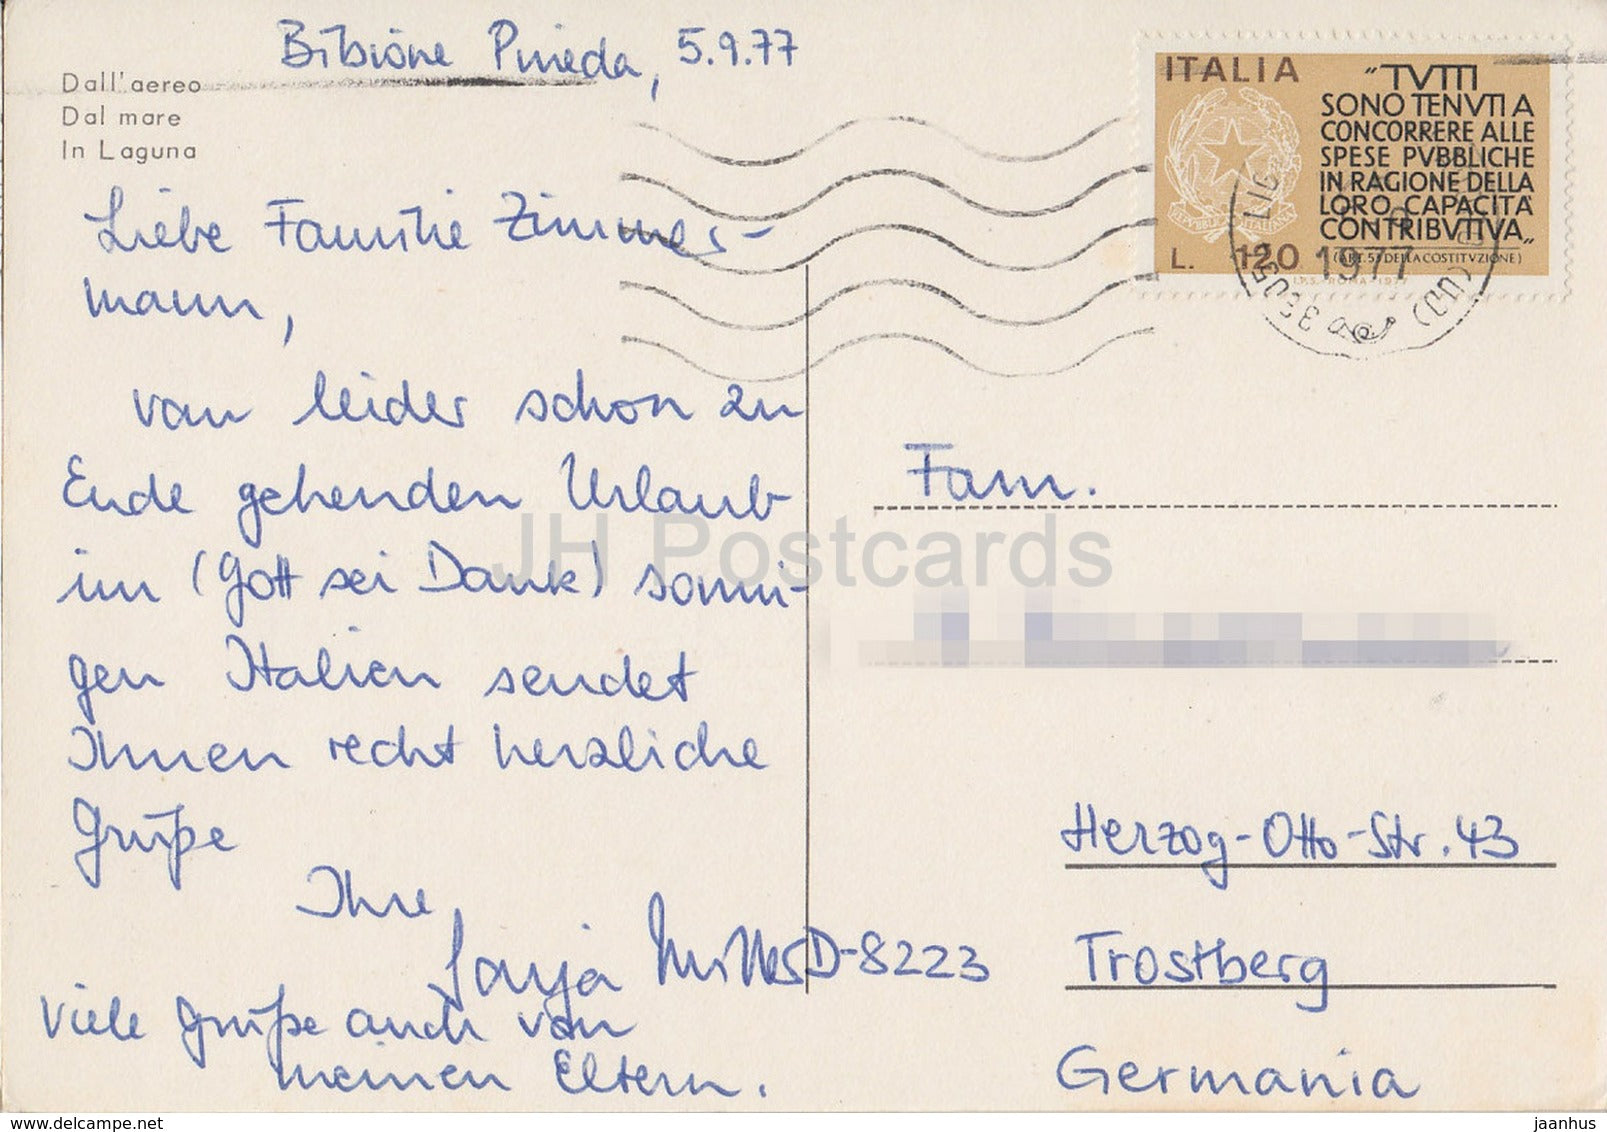 Bibione Pineda, 5.9.77
Dall'aereo
Dal mare
In Laguna
Liebe Familie Zimmer-
mann,
von leider schon zu
Ende gehenden Urlaub
im (Gott sei Dank) sonni-
gen Italien sendet
Ihnen recht herzliche
Grüße
Ihre
Sonja
Viele Grüße auch von
meinen Eltern.
ITALIA
"TVTTI
SONO TENVTI A
CONCORRERE ALLE
SPESE PVBBLICHE
IN RAGIONE DELLA
LORO CAPACITÀ
CONTRIBVTIVA„
(ART. 53 DELLA COSTITVZIONE)
L. 120
I.P.S. - ROMA - 1977
1977
Fam.
Herzog-Otto-Str. 43
D-8223 Trostberg
Germania
JH Postcards
www.delcampe.net
jaanhus